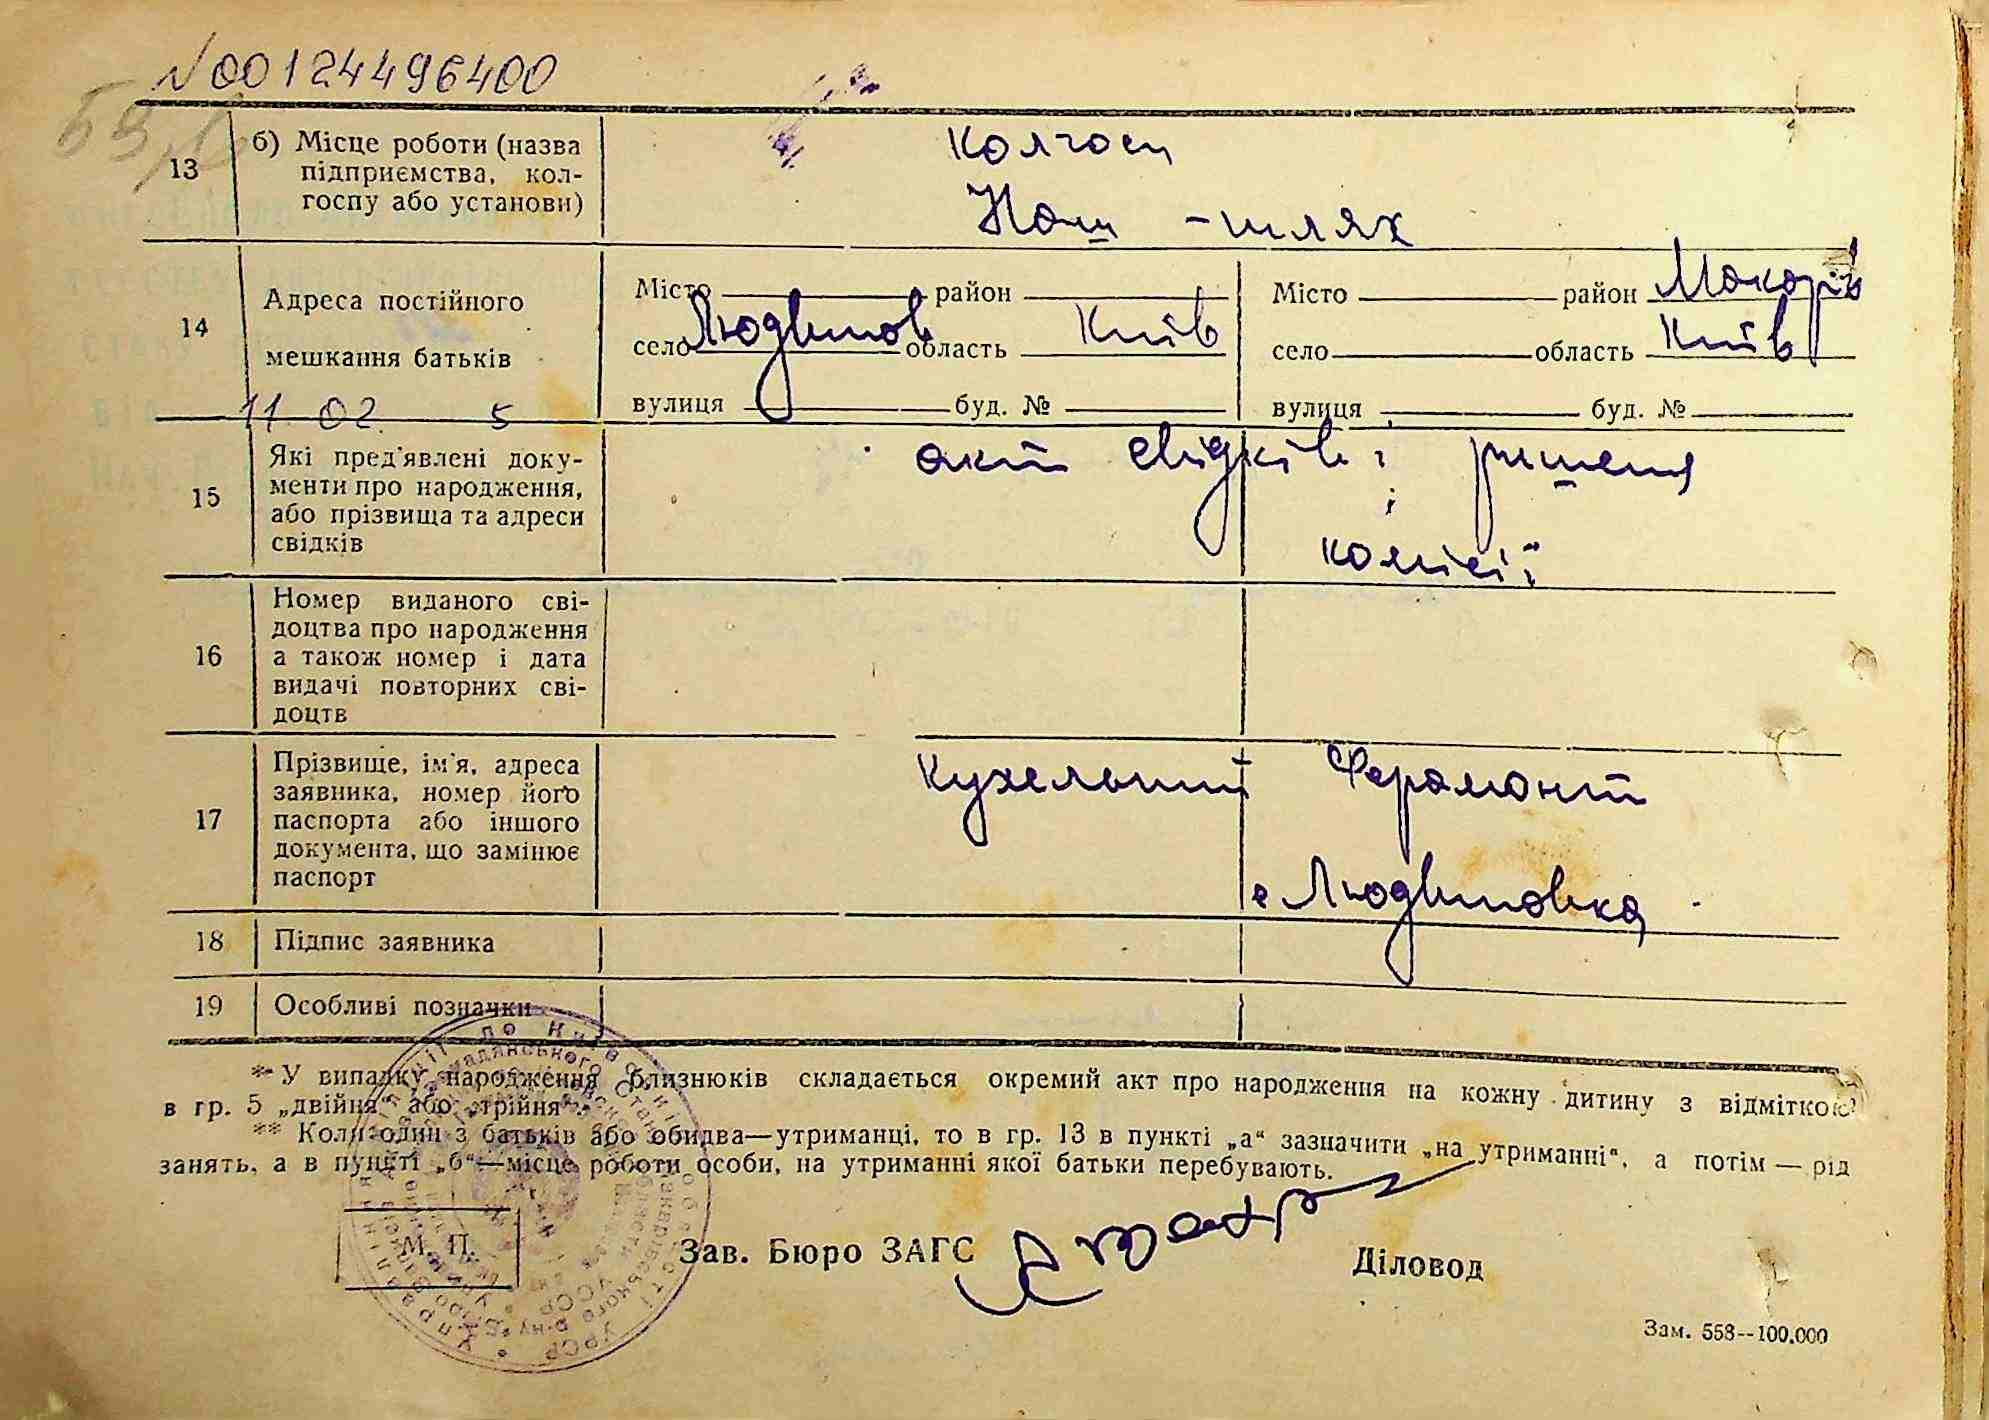 N00124496400
13
б) Місце роботи (назва
підприємства, кол-
госпу або установи)
Колгосп
Наш - шлях
14
Адреса постійного
мешкання батьків
Місто район
село Людвинов область Київ
вулиця буд. №
Місто район Макорів
село область Київ
вулиця буд. №
11 02 5
15
Які пред'явлені доку-
менти про народження,
або прізвища та адреси
свідків
акт свідків і
комісії
16
Номер виданого сві-
доцтва про народження
а також номер і дата
видачі повторних сві-
доцтв
17
Прізвище, ім'я, адреса
заявника, номер його
паспорта або іншого
документа, що замінює
паспорт
Кухельний Ферамонт
с Людвиновка
18
Підпис заявника
19
Особливі позначки
* У випадку народження близнюків складається окремий акт про народження на кожну дитину з відміткою
в гр. 5 „двійня“ або „трійня“.
** Коли один з батьків або обидва—утриманці, то в гр. 13 в пункті „а“ зазначити „на утриманні“, а потім — рід
занять, а в пункті „б“—місце роботи особи, на утриманні якої батьки перебувають.
М. П.
Зав. Бюро ЗАГС
Діловод
Зам. 558--100.000